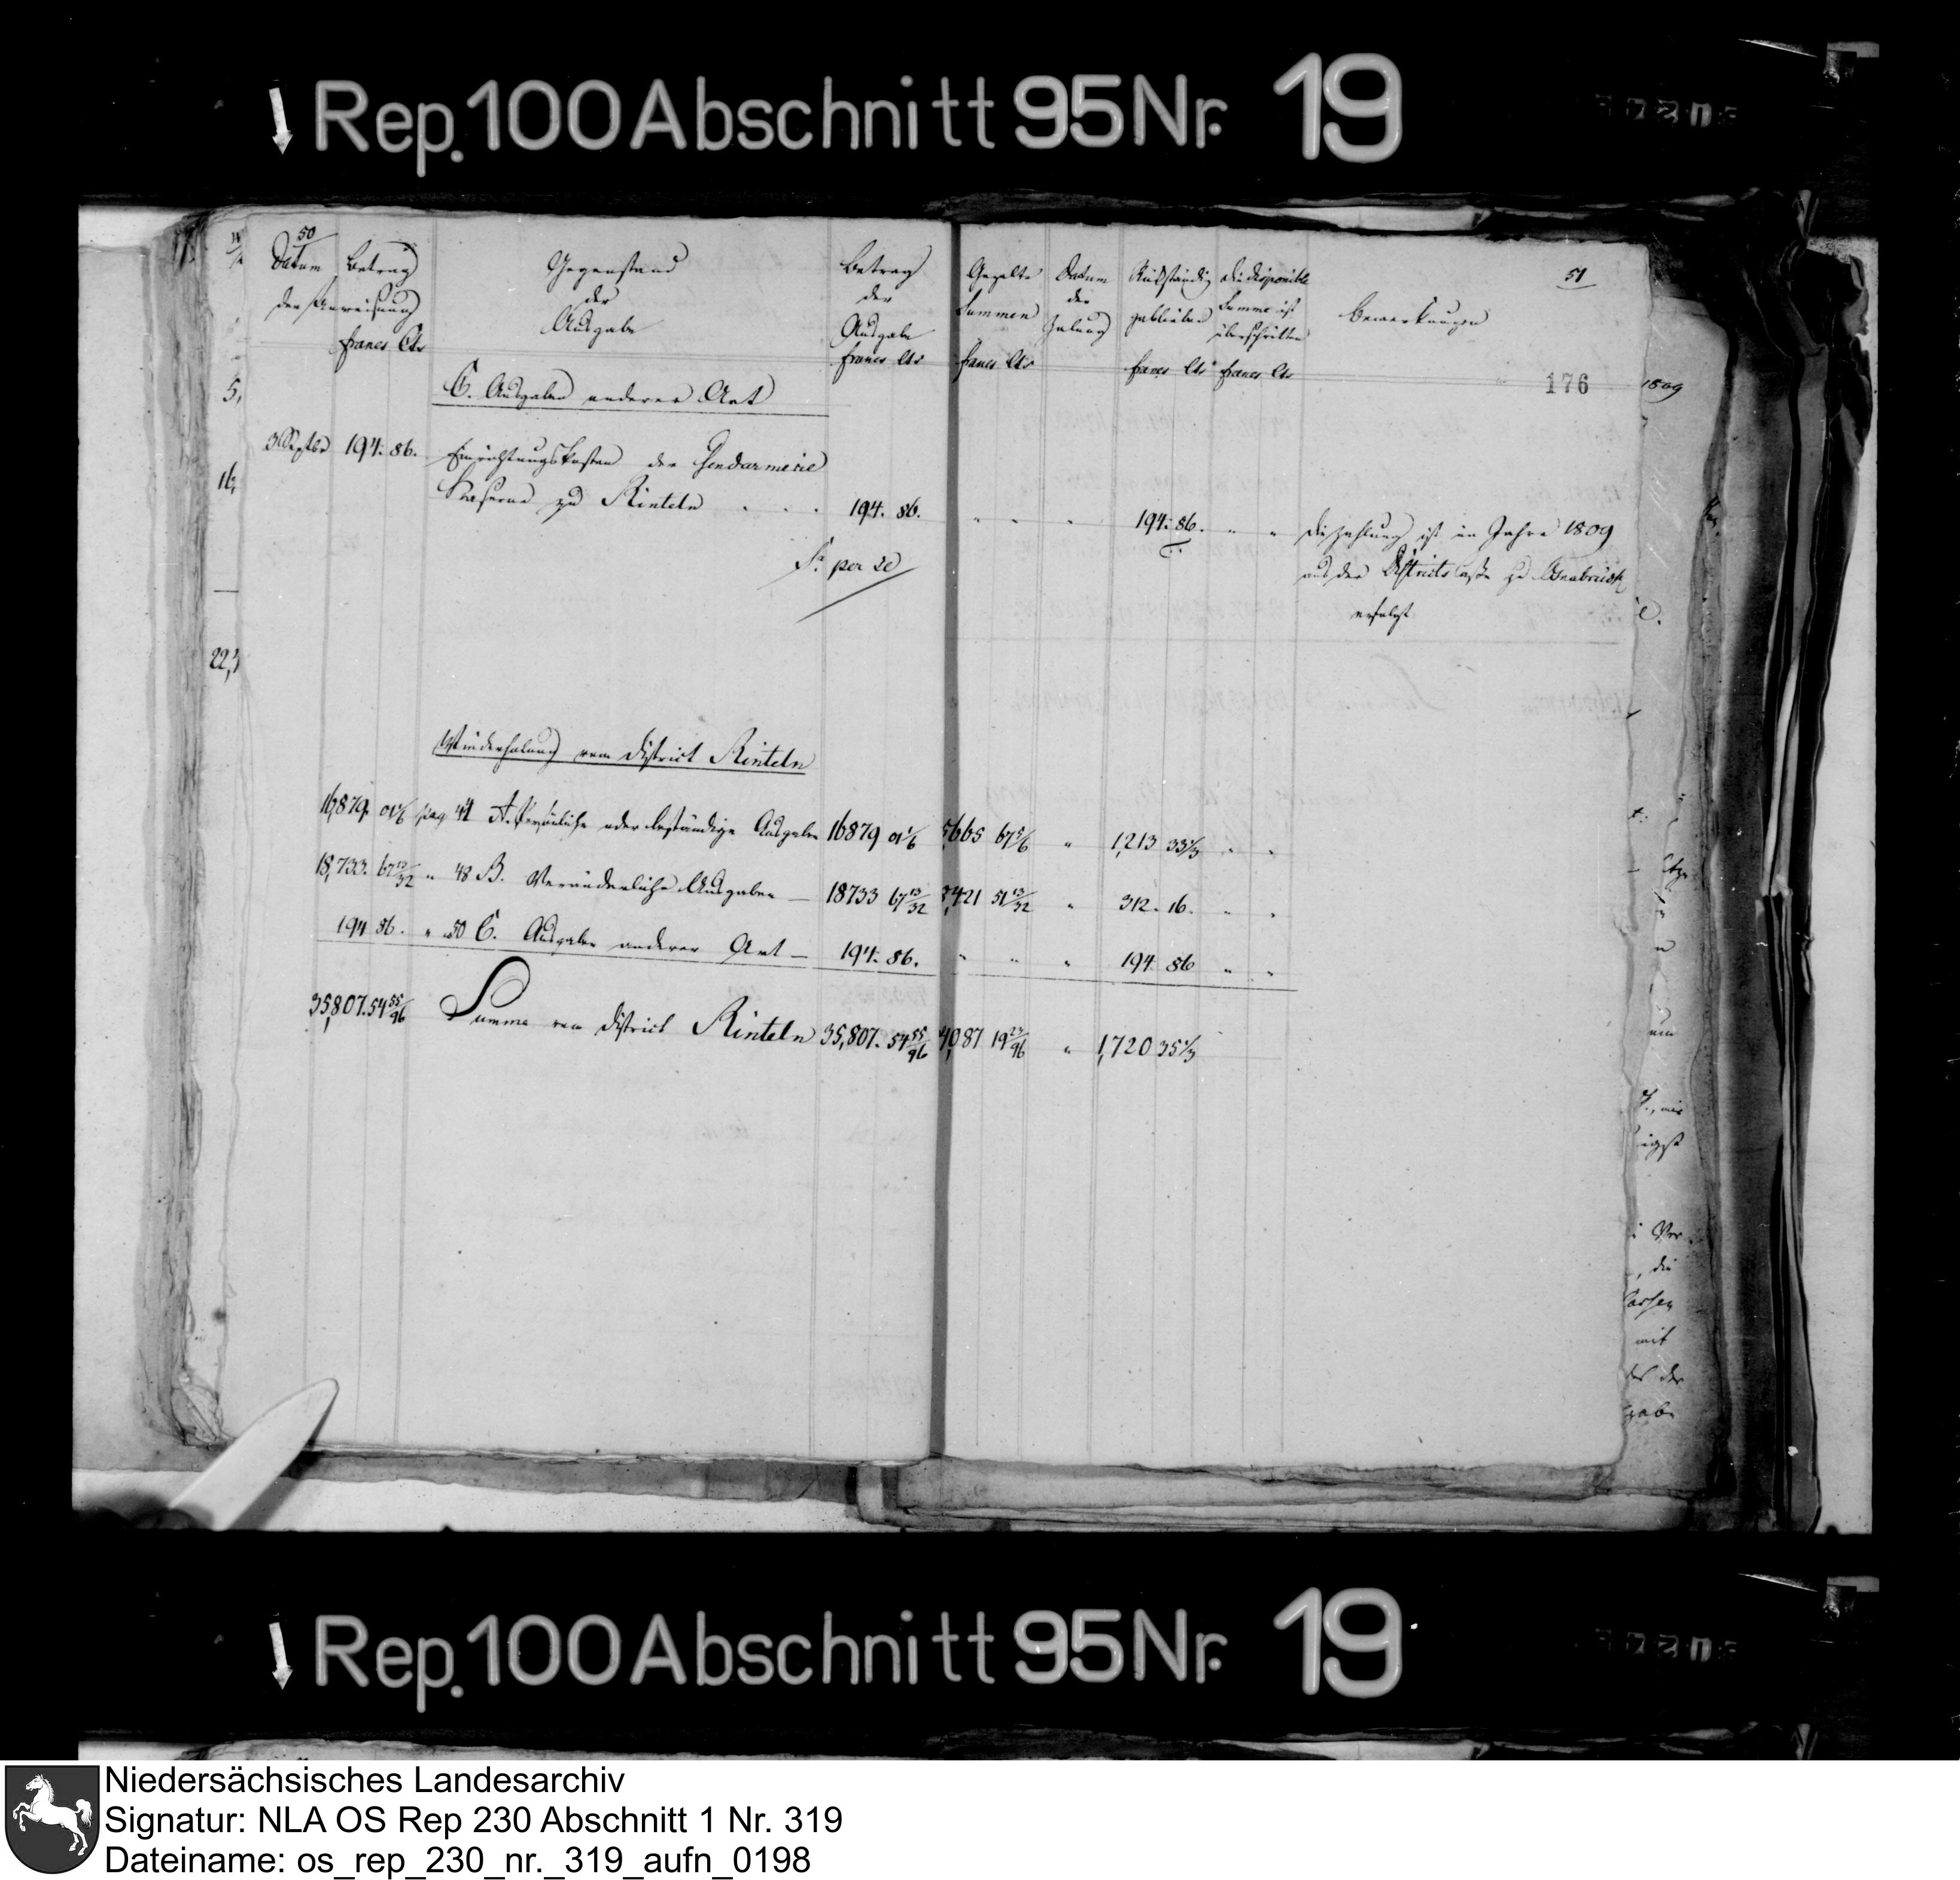 Rep. 100 Abschnitt 95 Nr. 19
50
Datum Betrag Gegenstand Betrag
der Anweisung der der
Ausgabe Ausgabe
francs Cts francs Cts
C. Ausgaben anderer Art
3 Septbr 194. 86. Einrichtungskosten der Gendarmerie
Kaserne zu Rinteln . . . 194. 86.
Sa. per se
Wiederholung vom District Rinteln
16,879. 01 1/6 pag 44 A. Persönliche oder beständige Ausgaben 16879 01 1/6
18,733. 67 13/32 " 48 B. Veränderliche Ausgaben — 18733 67 13/32
194 86. " 50 C. Ausgaben anderer Art — 194. 86.
35,807. 54 55/96 Summe vom District Rinteln 35,807. 54 55/96
51
Gezalte Datum Rückständig die disponible
Summen der geblieben Summe ist Bemerkungen
Zalung überschritten
francs Cts francs Cts francs Cts
176
" " " 194. 86. " " die Zahlung ist im Jahre 1809
aus der Districts Casse zu Osnabrück
erfolgt
5665 67 5/6 " 1,213 33 1/3 " "
8,421 51 13/32 " 312. 16. " "
" " " 194 86 " "
4,087 19 23/96 " 1,720 35 1/3
1809
5,
16,
22,
mit
Rep. 100 Abschnitt 95 Nr. 19
Niedersächsisches Landesarchiv
Signatur: NLA OS Rep 230 Abschnitt 1 Nr. 319
Dateiname: os_rep_230_nr._319_aufn_0198